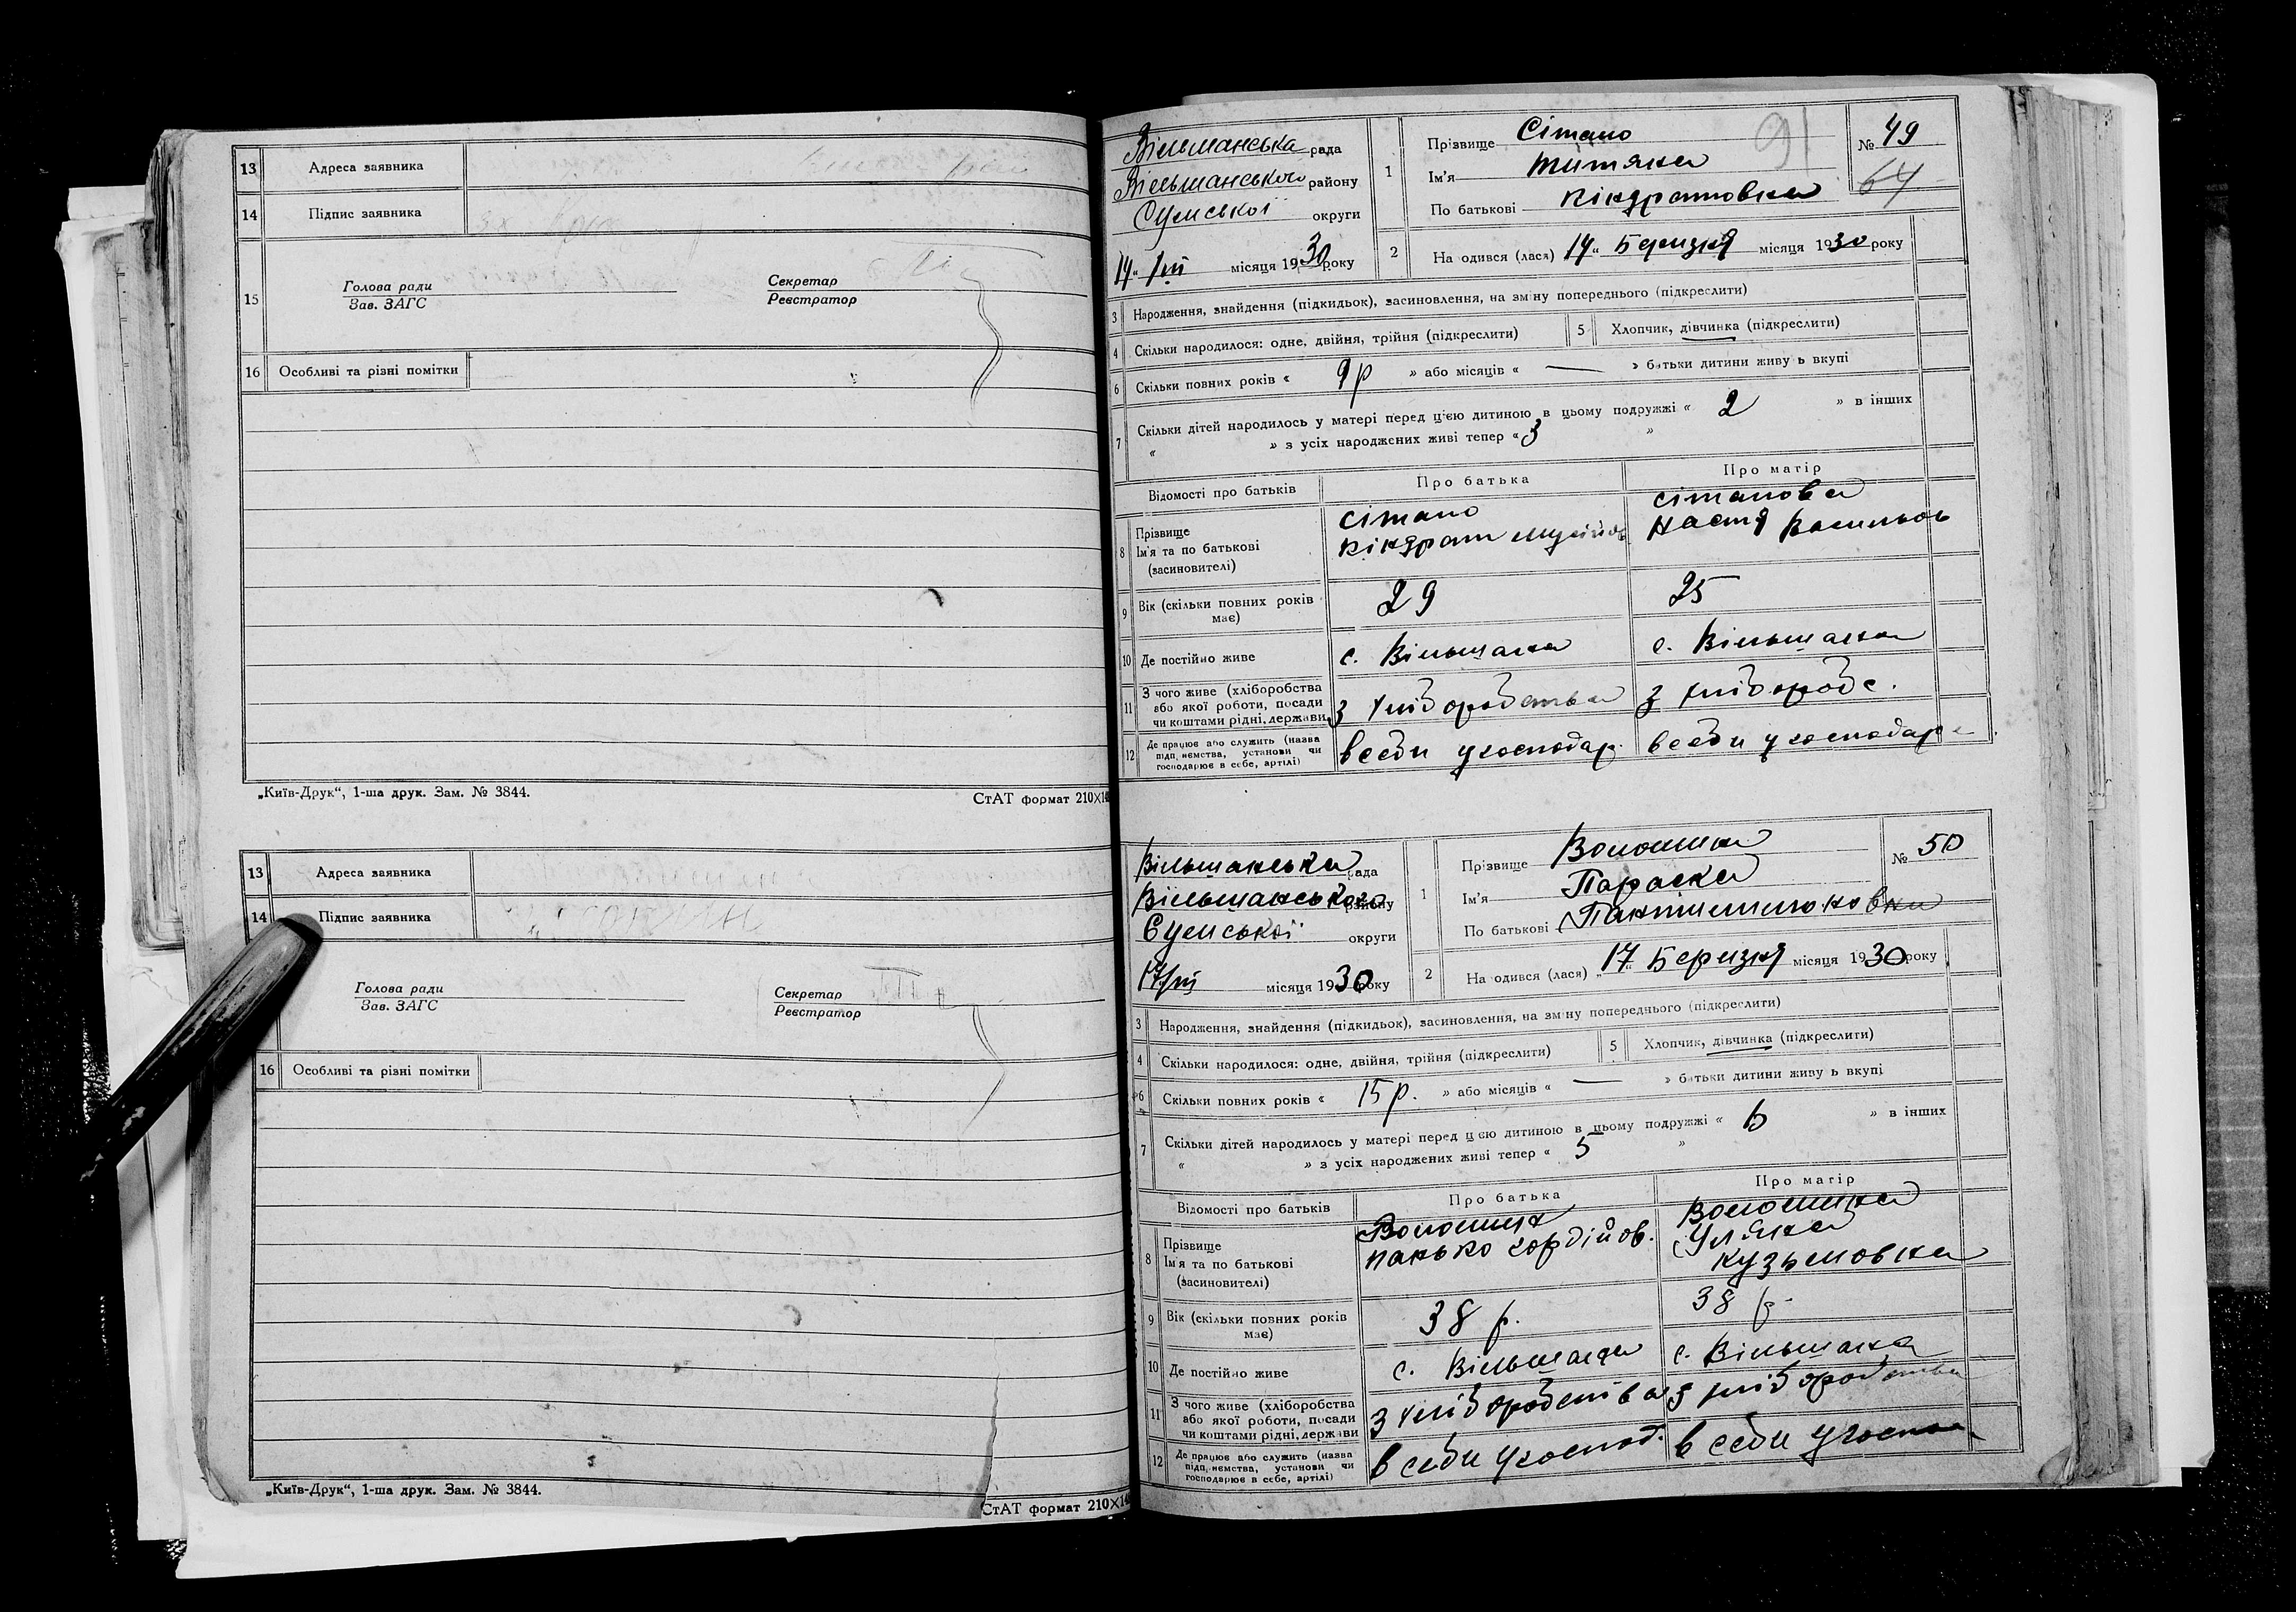 13 Адреса заявника
14 Підпис заявника
15 Голова ради
Зав. ЗАГС
Секретар
Реєстратор
16 Особливі та різні помітки
„Київ-Друк“, 1-ша друк. Зам. № 3844.
СтАТ формат 210×14
13 Адреса заявника
14 Підпис заявника
Голова ради
Зав. ЗАГС
Секретар
Реєстратор
16 Особливі та різні помітки
„Київ-Друк“, 1-ша друк. Зам. № 3844.
СтАТ формат 210×14
Вільшанська рада
Вільшанського району
Сумської округи
14 „ III місяця 1930 року
1 Прізвище Сітало
Ім'я
По батькові Кіндратовна
№ 49
91
64
2 На одився (лася) 14 „ Березня місяця 1930 року
3 Народження, знайдення (підкидьок), засиновлення, на зміну попереднього (підкреслити)
4 Скільки народилося: одне, двійня, трійня (підкреслити)
5 Хлопчик, дівчинка (підкреслити)
6 Скільки повних років « 9 р » або місяців « — » батьки дитини живуь вкупі
7 Скільки дітей народилось у матері перед цією дитиною в цьому подружжі « 2 » в інших
« » з усіх народжених живі тепер « 3 »
Відомості про батьків
Про батька
Про матір
8 Прізвище
Ім'я та по батькові
(засиновителі)
Сітало
Кіндрат Мусійов
Сіталова
Настя Васильов
9 Вік (скільки повних років має)
29
25
10 Де постійно живе
с. Вільшана
с. Вільшана
11 З чого живе (хліборобства
або якої роботи, посади
чи коштами рідні, держави
з хліборобства
з хлібороб с.
12 Де працює або служить (назва
підприємства, установи чи
господарює в себе, артілі)
в себи у господар.
в себи у господар
Вільшанська рада
Вільшанського району
Сумської округи
17/III місяця 1930 року
1 Прізвище Волошина
Ім'я Параска
По батькові
№ 50
2 На одився (лася) „ 17 „ Березня місяця 1930 року
3 Народження, знайдення (підкидьок), засиновлення, на зміну попереднього (підкреслити)
4 Скільки народилося: одне, двійня, трійня (підкреслити)
5 Хлопчик, дівчинка (підкреслити)
6 Скільки повних років « 15 р. » або місяців « — » батьки дитини живуь вкупі
7 Скільки дітей народилось у матері перед цією дитиною в цьому подружжі « 6 » в інших
« » з усіх народжених живі тепер « 5 »
Відомості про батьків
Про батька
Про матір
8 Прізвище
Ім'я та по батькові
(засиновителі)
Волошин
Панько Гордійов.
Волошина
Уляна
Кузьмовна
9 Вік (скільки повних років має)
38 р.
38 р.
10 Де постійно живе
с. Вільшана
с. Вільшана
11 З чого живе (хліборобства
або якої роботи, посади
чи коштами рідні, держави
з хліборобства
з хліборобства
12 Де працює або служить (назва
підприємства, установи чи
господарює в себе, артілі)
в себи у господ.
в себи у господ